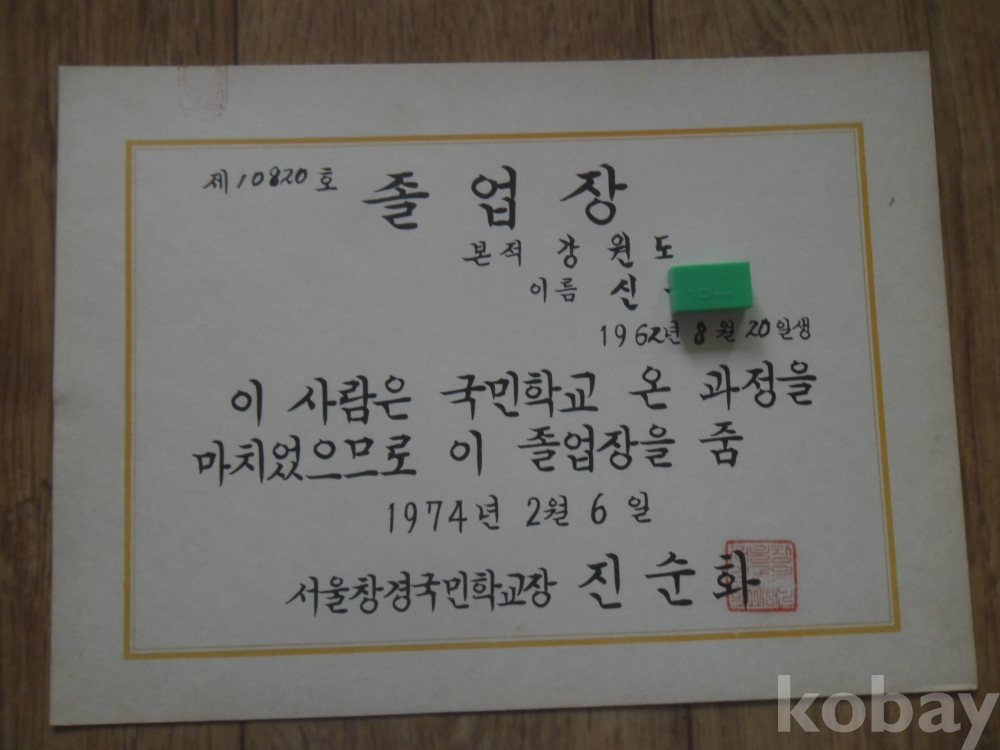 제10820호
졸업장
본적 강원도
이름 신
1962년 8월 20일생
이 사람은 국민학교 온 과정을
마치었으므로 이 졸업장을 줌
1974년 2월 6일
서울창경국민학교장 진순화
kobay